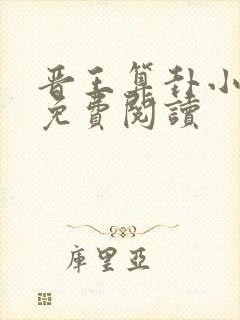 晋王算卦小
免費閱讀
庫里亞